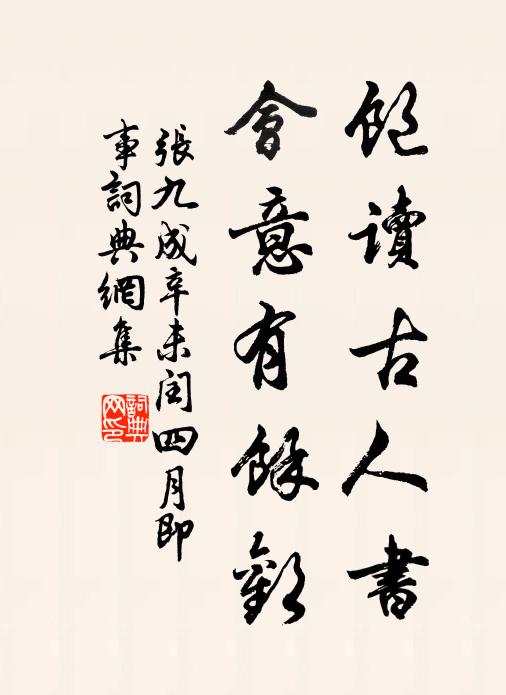 飽讀古人書
會意有餘歡
張九成辛未閏四月即
事詞典網集
詞典
网印